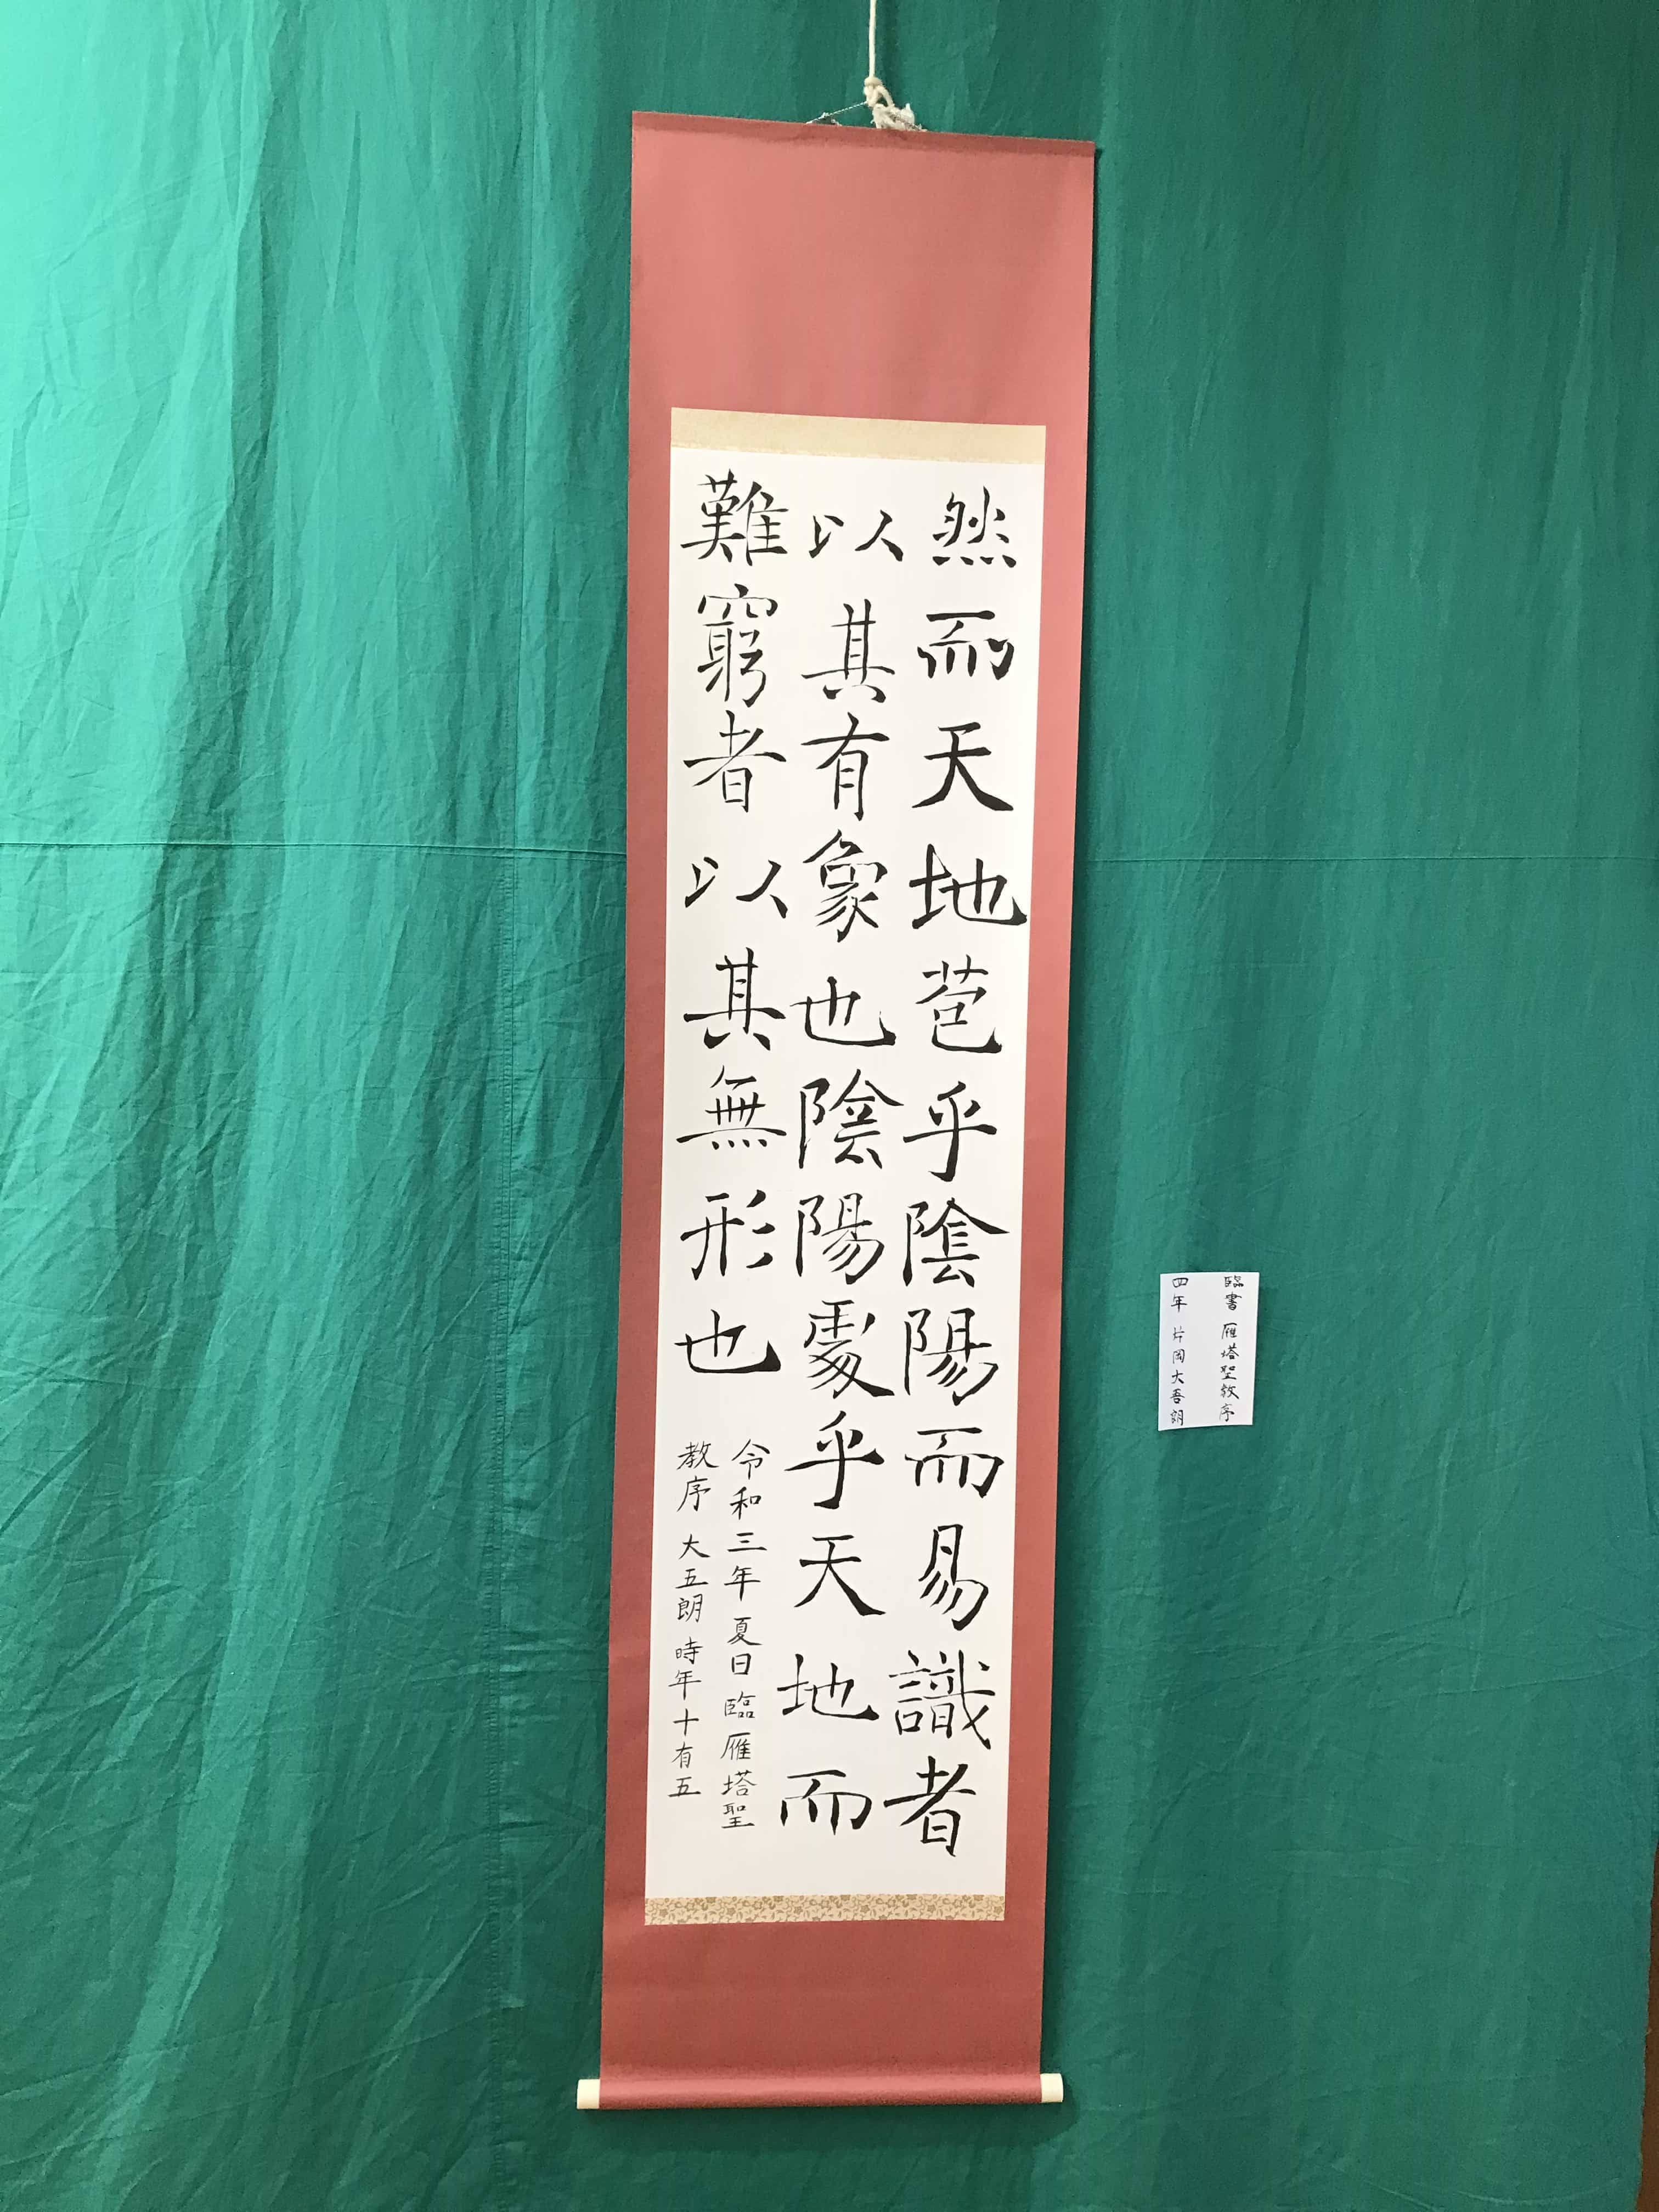 然而天地苞乎陰陽而易識者
以其有象也陰陽處乎天地而
難窮者以其無形也
令和三年夏日臨雁塔聖
教序 大五朗 時年十有五
臨書 雁塔聖教序
四年 片岡大吾朗